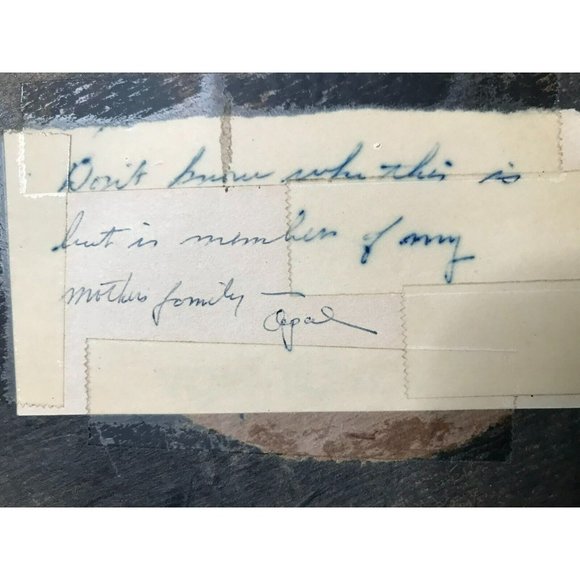 Don't know who this is
but is member of my
mothers family —